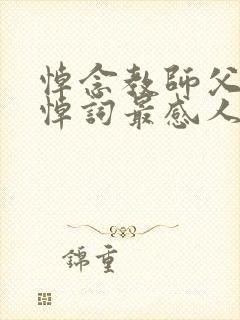 悼念教師父
悼詞最感人
錦重